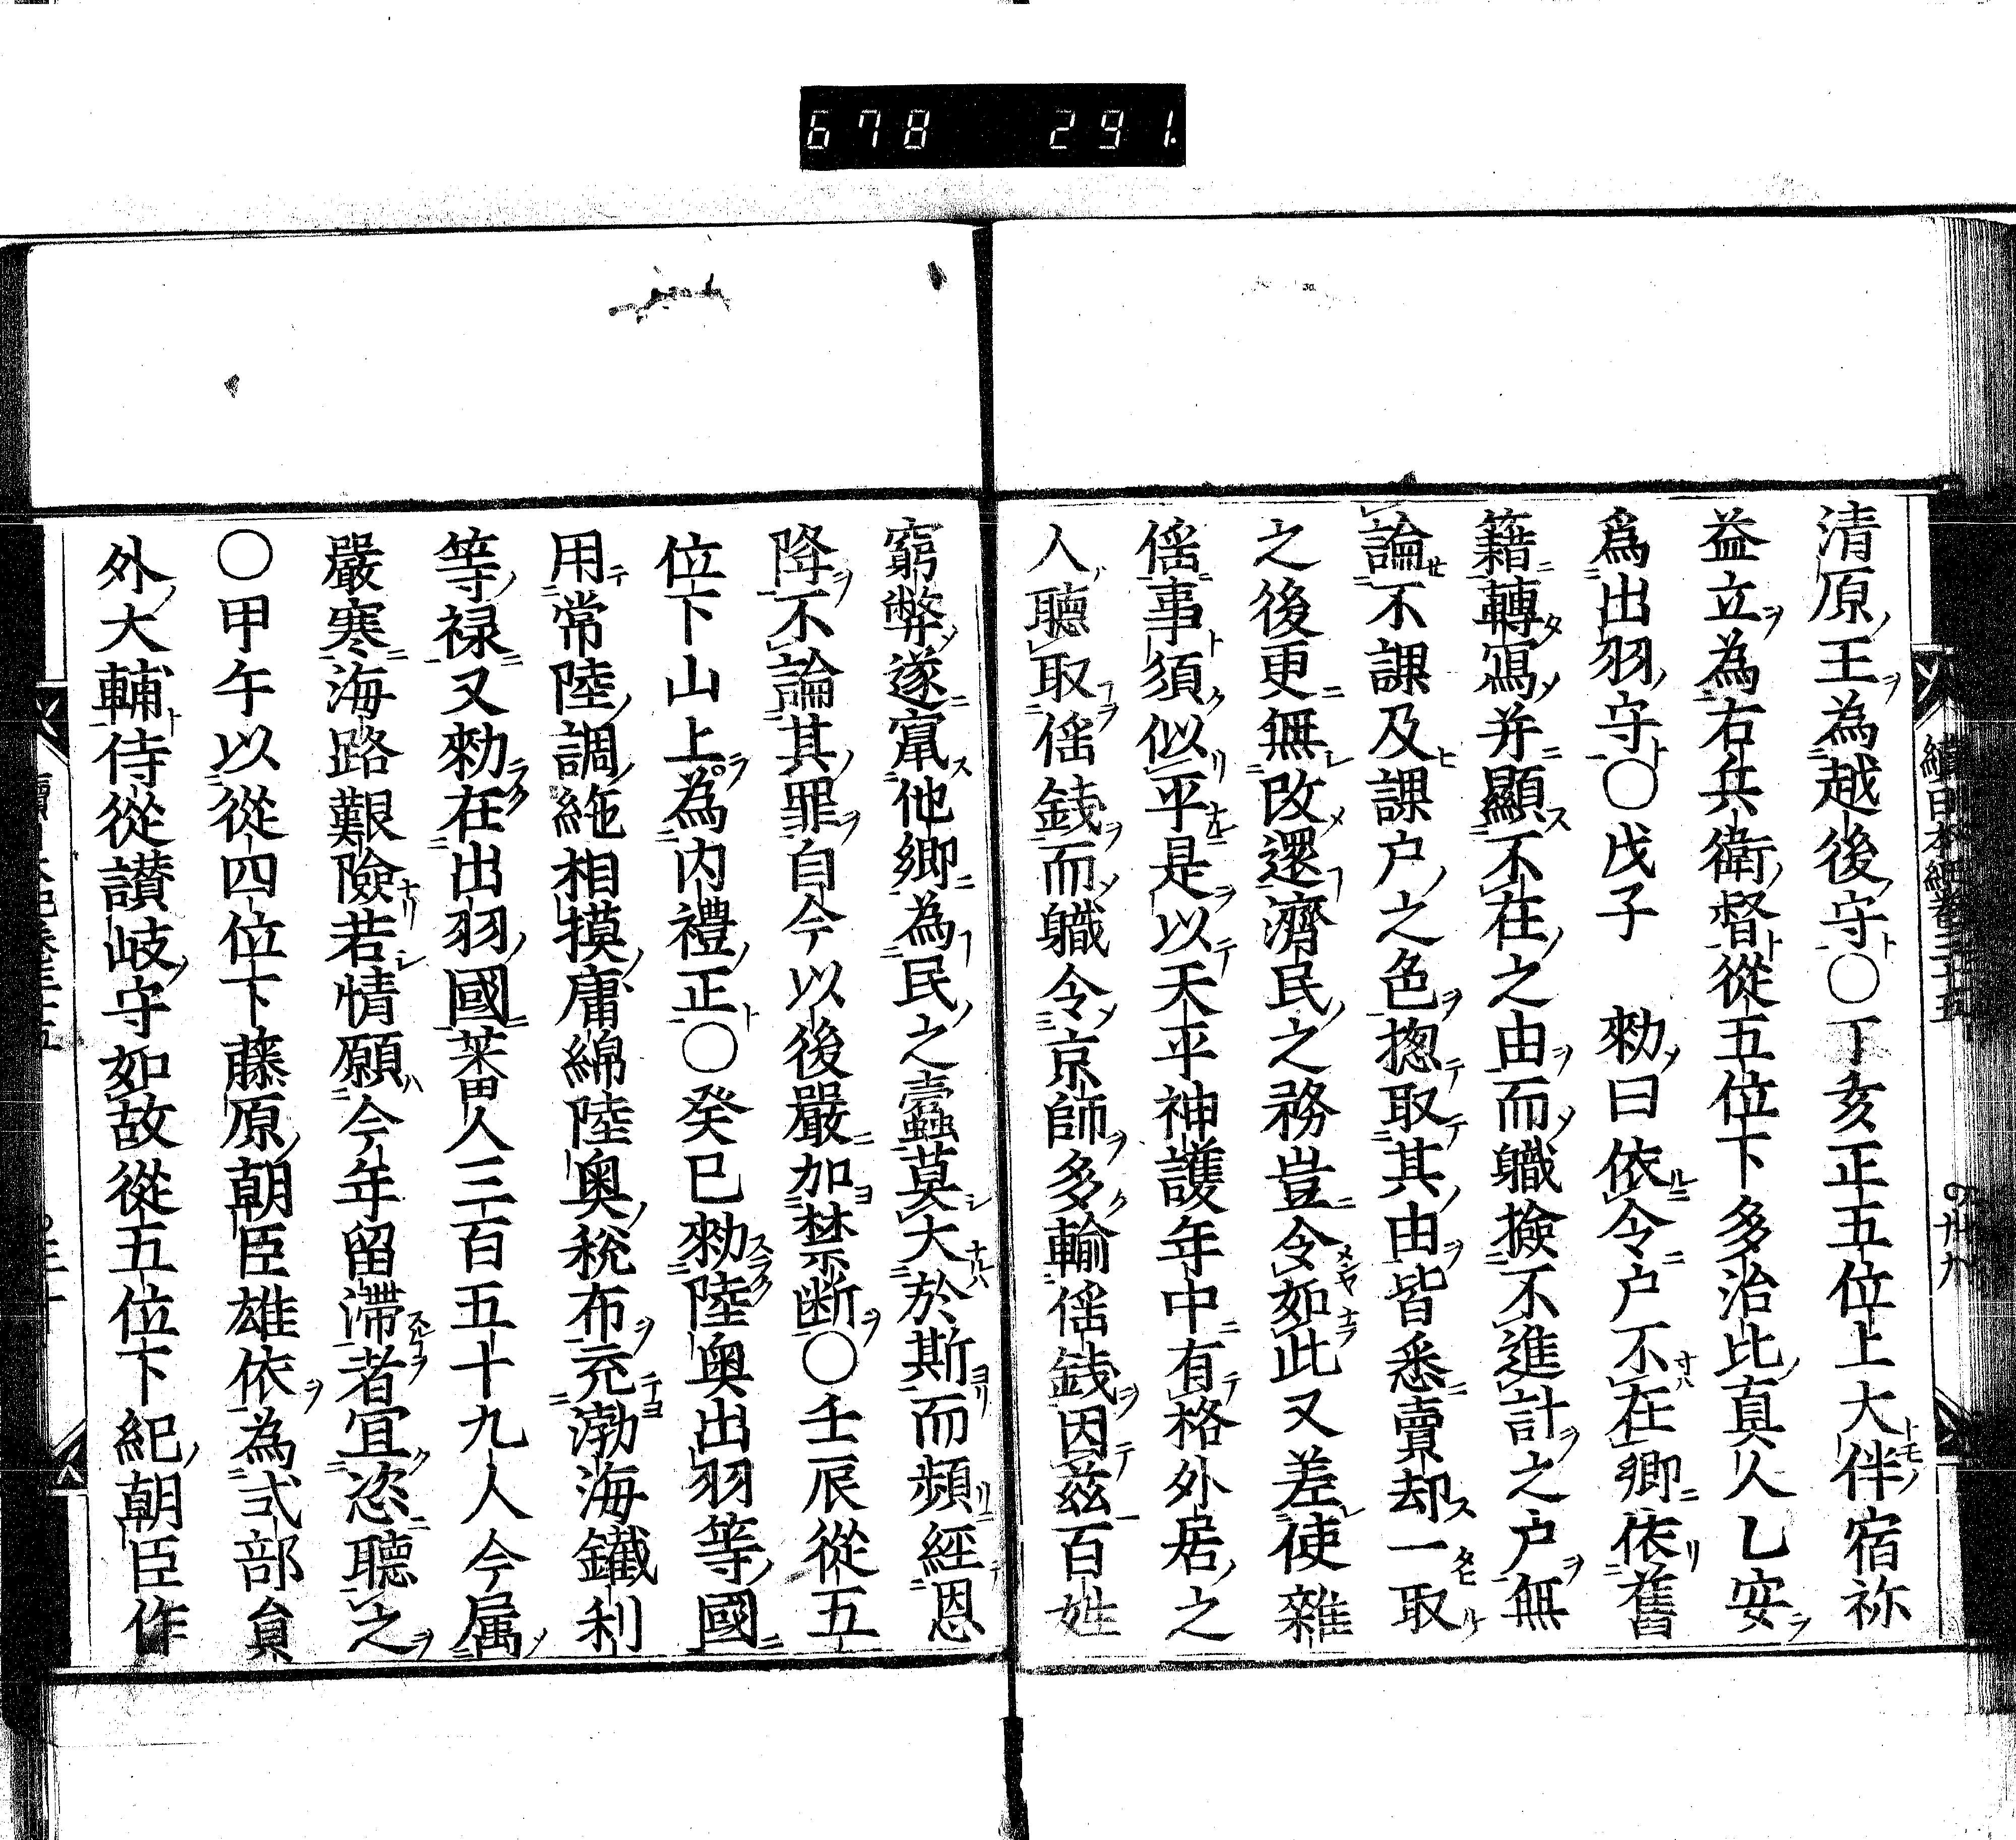 678 291
清原王為越後守○丁亥正五位上大伴宿祢
益立為右兵衛督從五位下多治比真人乙安
爲出羽守○戊子 勑曰依令户不在卿依舊
籍轉寫并顯不在之由而職撿不進計之户無
論不課及課户之色惣取其由皆悉賣却一取
之後更無改還濟民之務豈令如此又差使雜
徭事須似平是以天平神護年中有格外居之
人聴取徭錢而職令京師多輸徭錢因茲百姓
窮弊遂竄他卿為民之蠧莫大於斯而頻經恩
降不論其罪自今以後嚴加禁断○壬辰從五
位下山上為内禮正○癸巳勑陸奥出羽等國
用常陸調絁相摸庸綿陸奥税布充渤海鐵利
等禄又勑在出羽國莱畨人三百五十九人今属
嚴寒海路艱險若情願今年留滞者宜恣聴之
○甲午以從四位下藤原朝臣雄依為式部貟
外大輔侍從讃岐守如故從五位下紀朝臣作